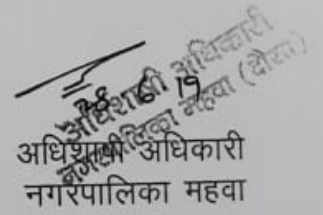 अधिशाषी अधिकारी
नगरपालिका महवा (दौसा)
28 6 19
अधिशाषी अधिकारी
नगरपालिका महवा